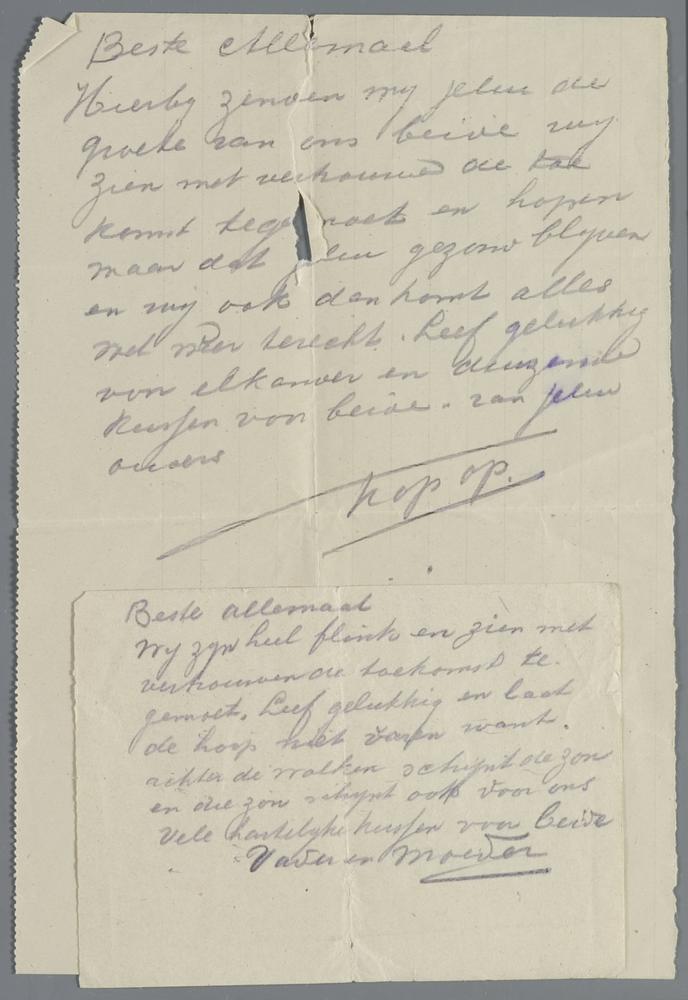 Beste Allemaal
Hierby zenden wy jelui de
groete van ons beide wy
zien met vertrouwe de toe
komst tegemoet en hopen
maar dat jelui gezond blyven
en wy ook dan komt alles
wel weer terecht. Leef gelukkig
voor elkander en duizende
kussen voor beide. van jelui
ouders
kop op.
Beste allemaal
Wy zyn heel flink en zien met
vertrouwen de toekomst te-
gemoet. Leef gelukkig en laat
de hoop niet varen want.
achter de wolken schynt de zon
en die zon schynt ook voor ons
Vele hartelyke kussen voor beide
Vader en Moeder